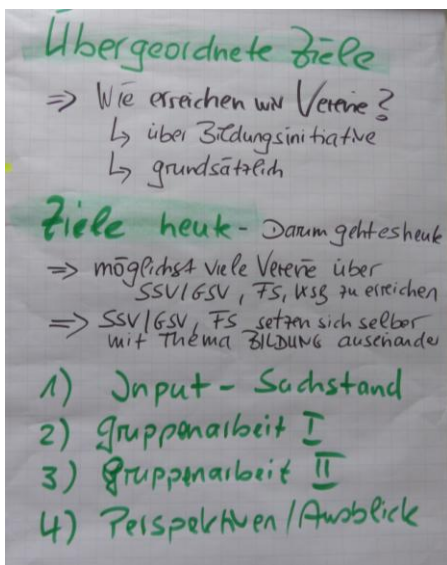 Übergeordnete Ziele
⇒ Wie erreichen wir Vereine?
↳ über Bildungsinitiative
↳ grundsätzlich
Ziele heute - Darum geht es heute
⇒ möglichst viele Vereine über
SSV/GSV, FS, KSB zu erreichen
⇒ SSV/GSV, FS setzen sich selber
mit Thema BILDUNG auseinander
1) Input - Sachstand
2) Gruppenarbeit I
3) Gruppenarbeit II
4) Perspektiven/Ausblick